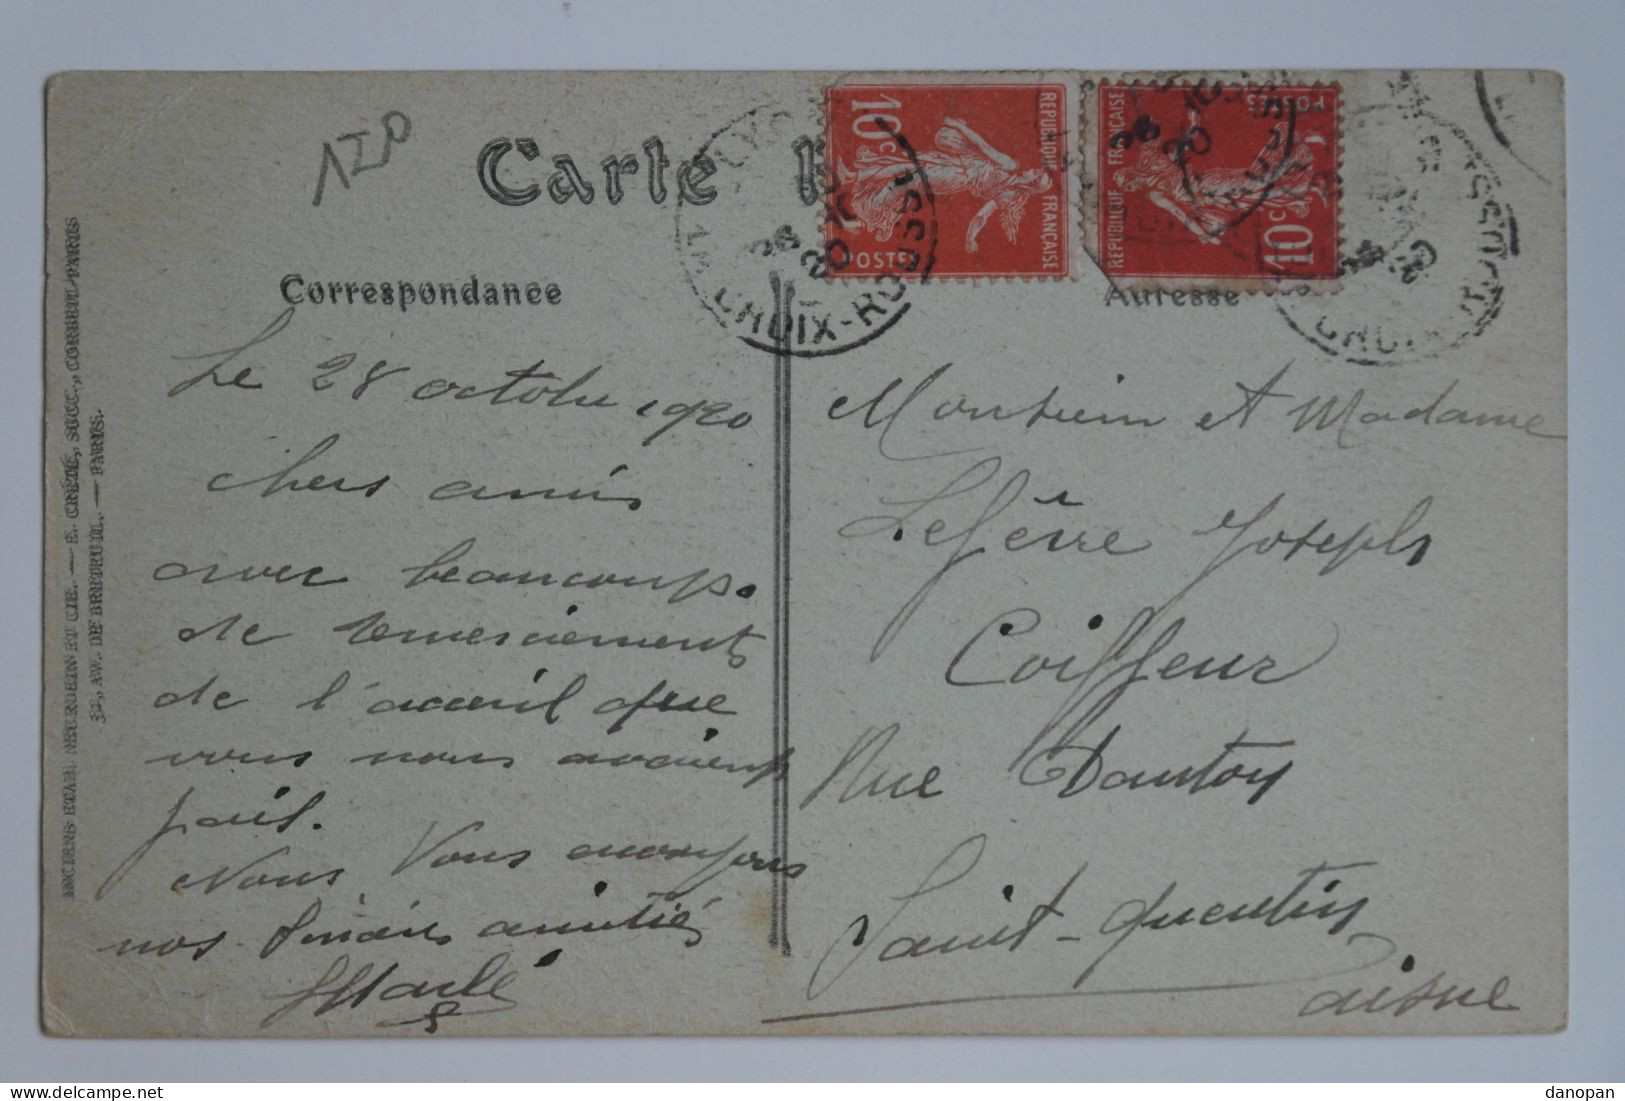 120
Carte
Correspondance
Adresse
LYON
LA CROIX-ROUSSE
10c
REPUBLIQUE FRANÇAISE
POSTES
REPUBLIQUE FRANÇAISE
10c
POSTES
Le 28 octobre 1920
chers amis
avec beaucoup
de remerciements
de l'acceuil que
vous nous avaient
fait.
Nous Vous envoyons
nos amitiés
Monsieur et Madame
Lefêvre Joseph
Coiffeur
Rue Danton
Saint-Quentin
aisne
ANCIENS ETAB. NEURDEIN ET CIE. — E. CRÉTÉ, SUCC., CORBEIL-PARIS
52, AV. DE BRETEUIL. — PARIS.
danopan